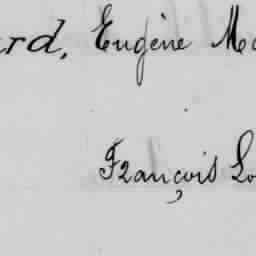 rd, Eugène
François